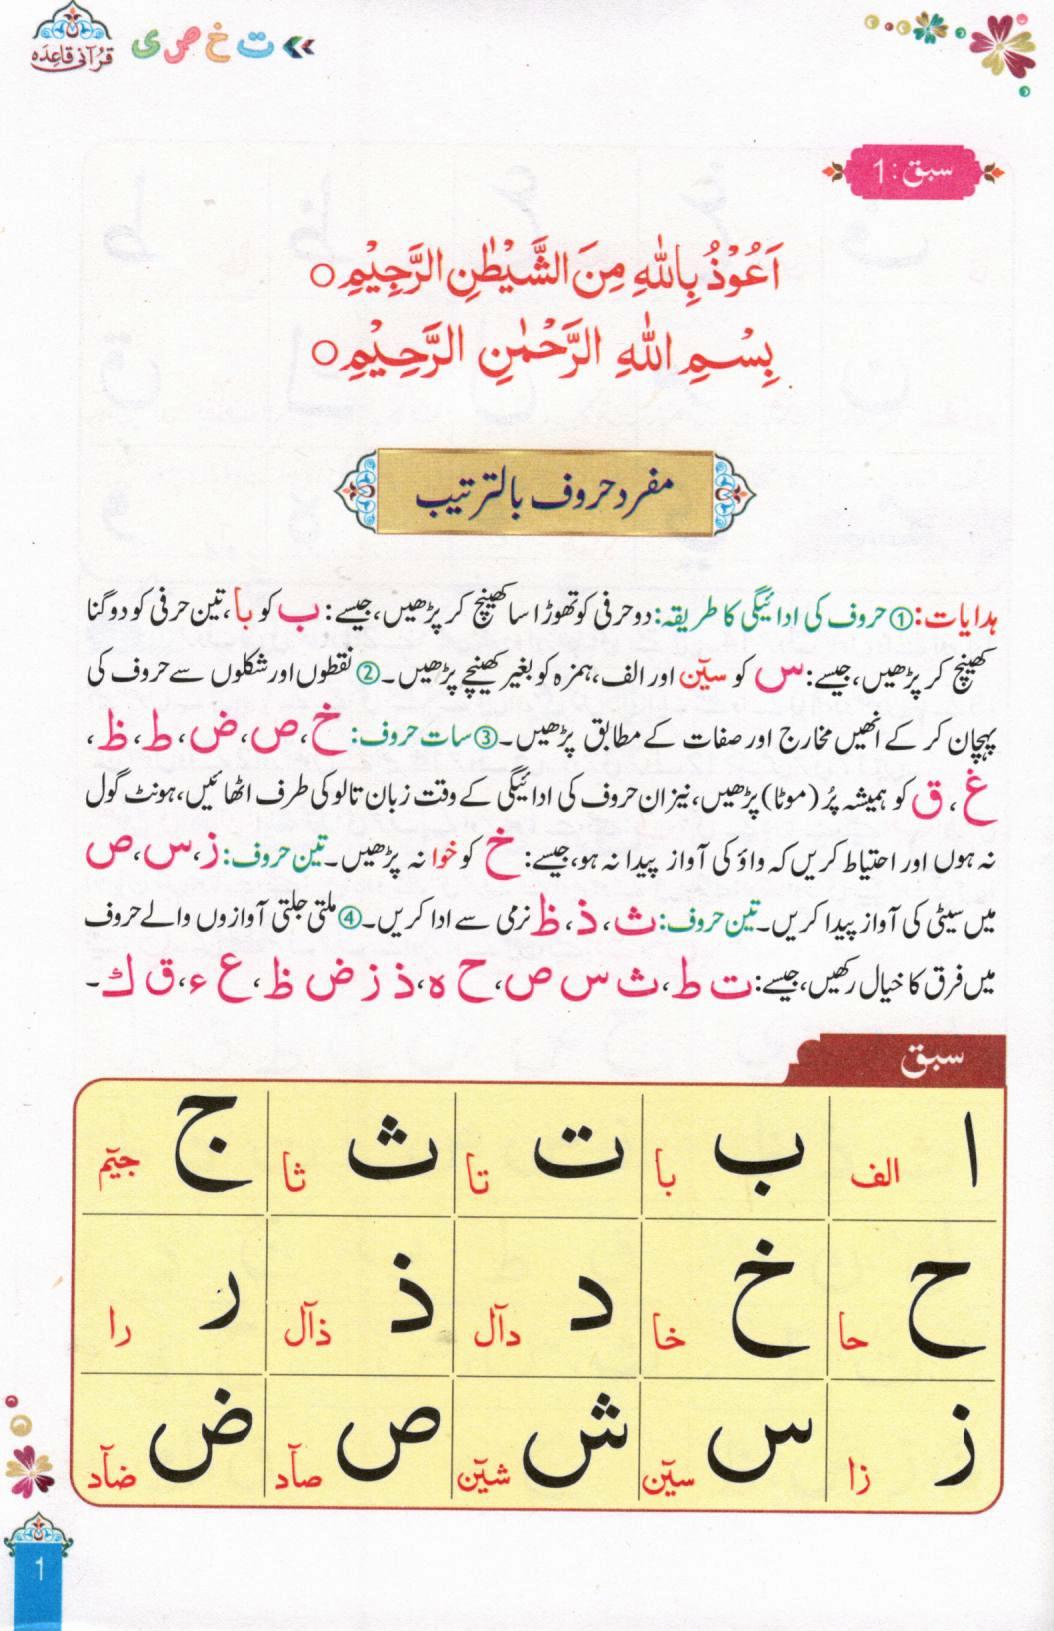 قرآنی قاعدہ
ت خ ص ی
سبق: 1
اَعُوْذُ بِاللّٰهِ مِنَ الشَّيْطٰنِ الرَّجِيْمِ ○
بِسْمِ اللّٰهِ الرَّحْمٰنِ الرَّحِيْمِ ○
مفرد حروف بالترتیب
ہدایات: ① حروف کی ادائیگی کا طریقہ: دو حرفی کو تھوڑا سا کھینچ کر پڑھیں، جیسے: ب کو با، تین حرفی کو دوگنا
کھینچ کر پڑھیں، جیسے: س کو سیٓن اور الف، ہمزہ کو بغیر کھینچے پڑھیں۔ ② نقطوں اور شکلوں سے حروف کی
پہچان کر کے انھیں مخارج اور صفات کے مطابق پڑھیں۔ ③ سات حروف: خ، ص، ض، ط، ظ،
غ، ق کو ہمیشہ پُر (موٹا) پڑھیں، نیز ان حروف کی ادائیگی کے وقت زبان تالو کی طرف اٹھائیں، ہونٹ گول
نہ ہوں اور احتیاط کریں کہ واؤ کی آواز پیدا نہ ہو، جیسے: خ کو خوا نہ پڑھیں۔ تین حروف: ز، س، ص
میں سیٹی کی آواز پیدا کریں۔ تین حروف: ث، ذ، ظ نرمی سے ادا کریں۔ ④ ملتی جلتی آوازوں والے حروف
میں فرق کا خیال رکھیں، جیسے: ت ط، ث س ص، ح ہ، ذ ز ض ظ، ع ء، ق ك۔
سبق
ا الف ب با ت تا ث ثا ج جیٓم
ح حا خ خا د دآل ذ ذآل ر را
ز زا س سیٓن ش شیٓن ص صآد ض ضآد
1